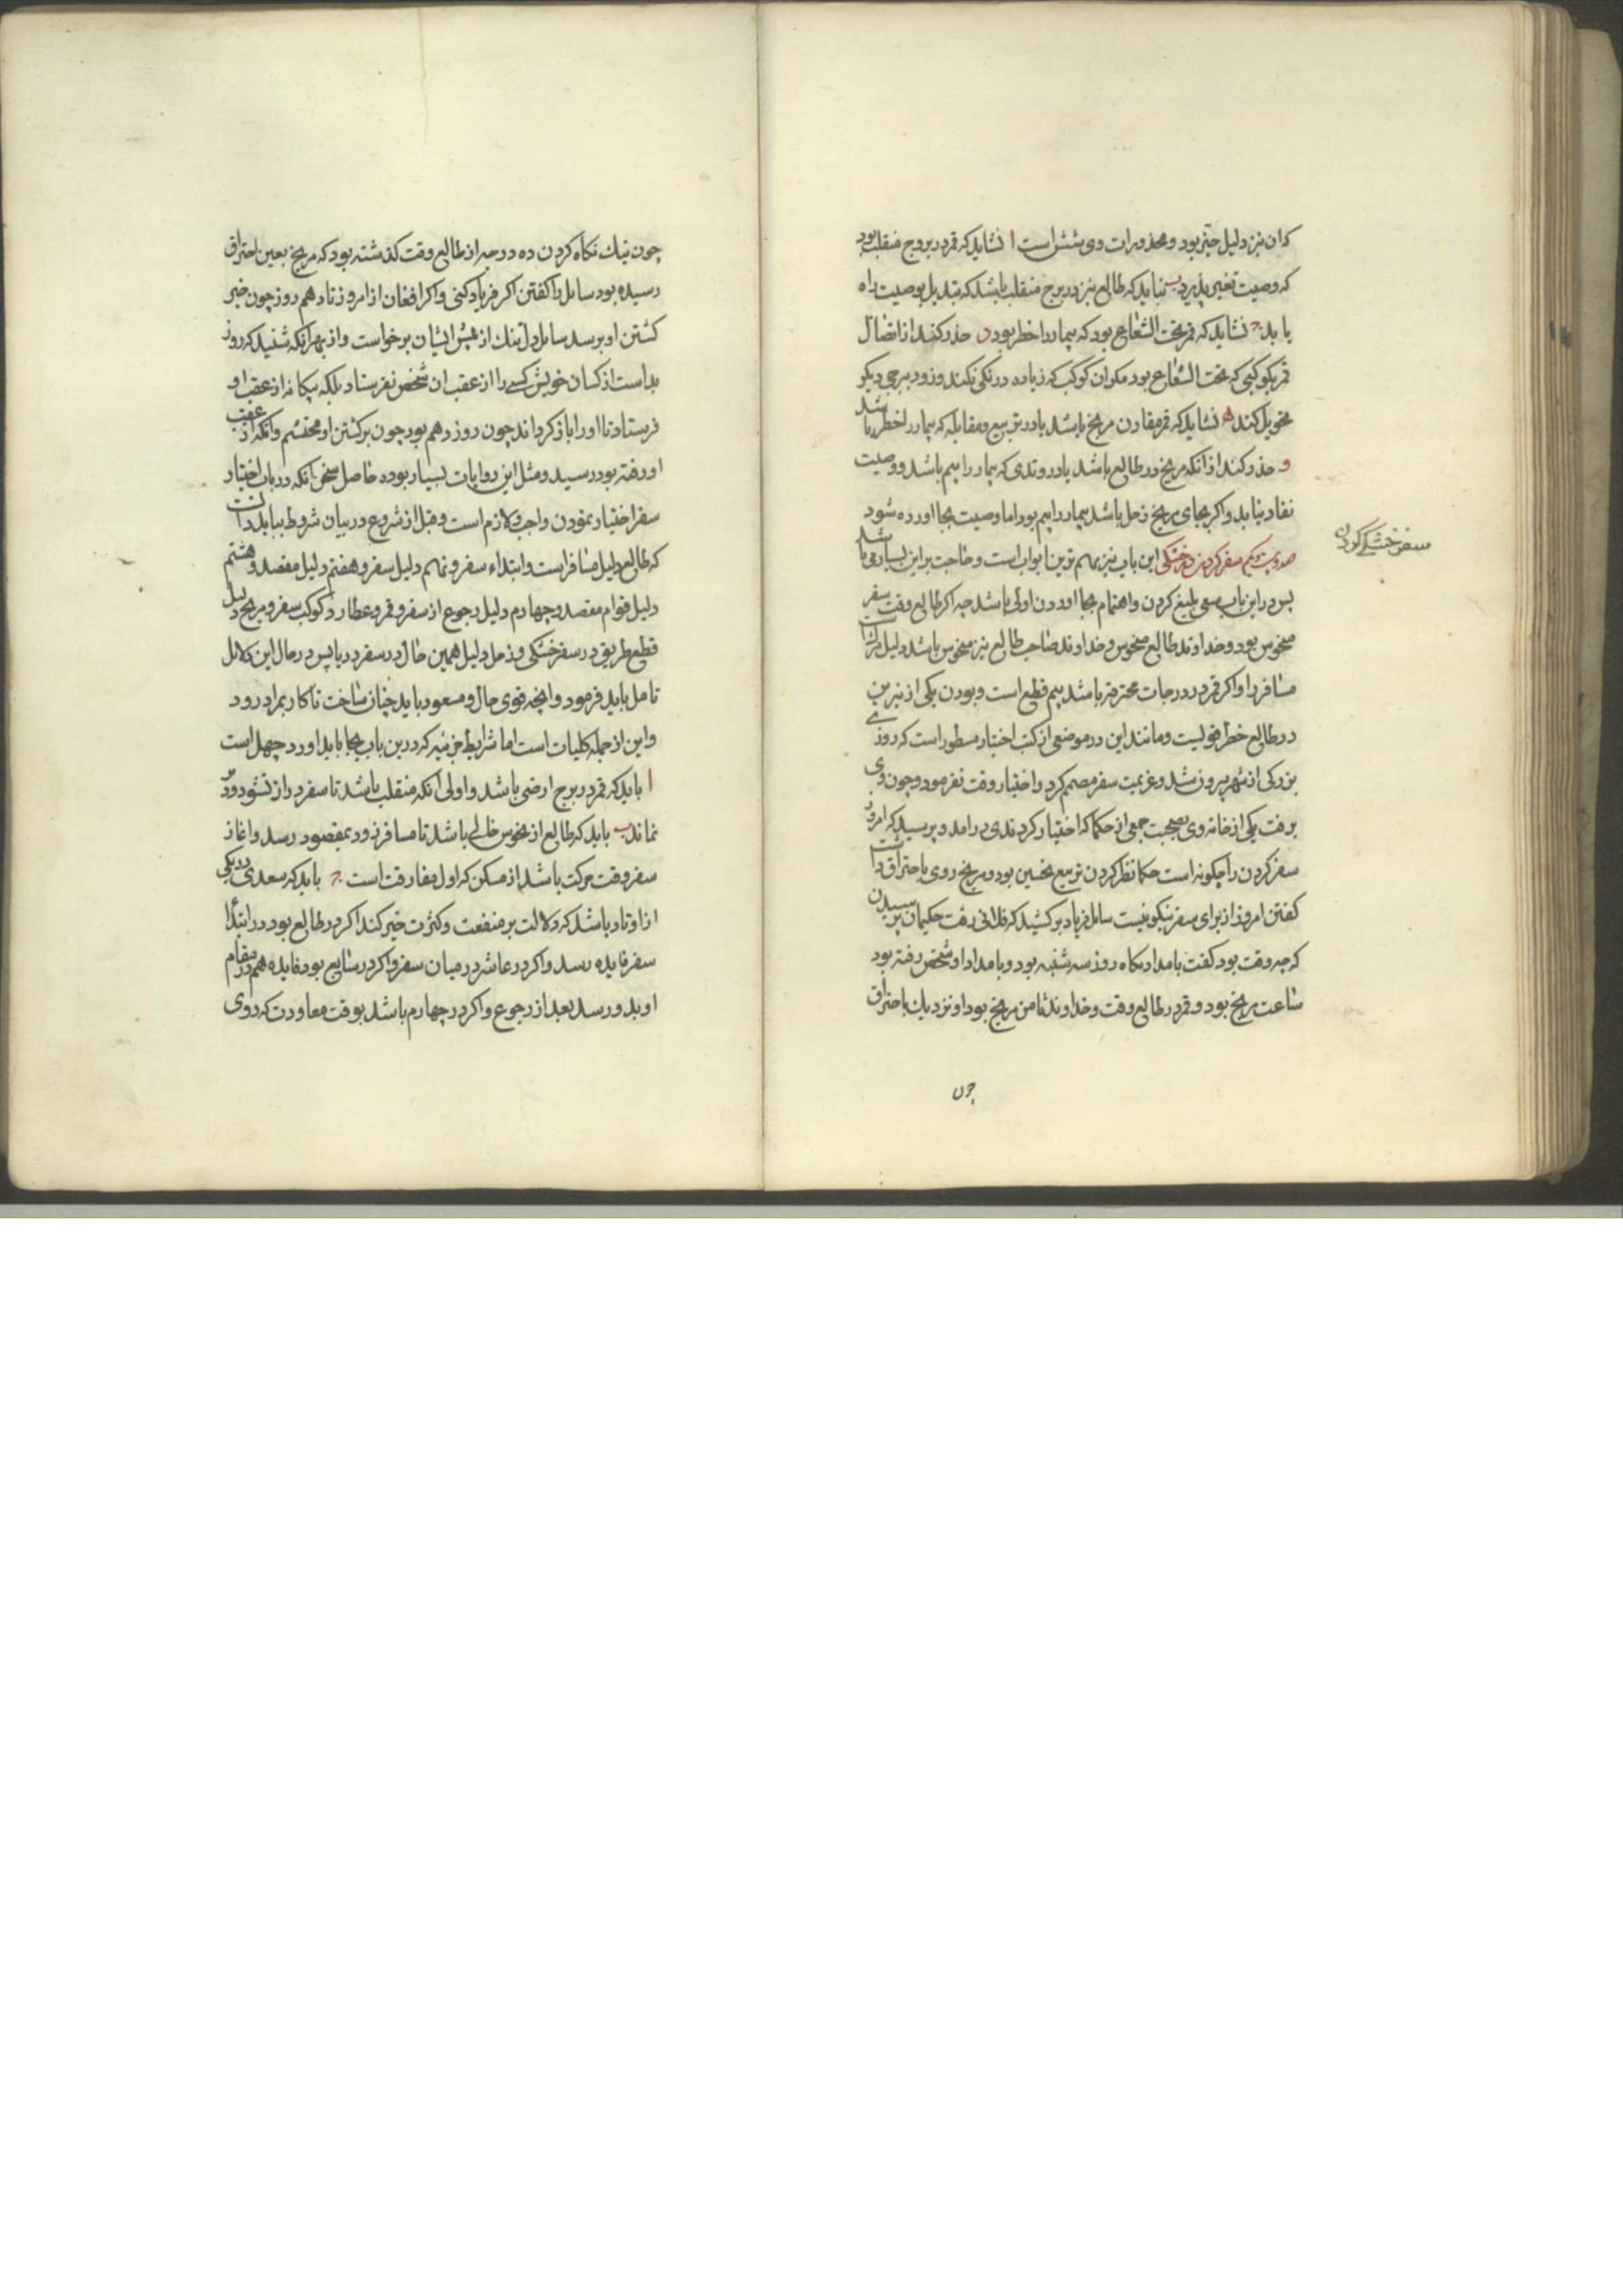 که ان نیز دلیل خیر بود و محذورات وی شش است ا نشاید که قمر در بروج منقلب بود
که وصیت تغیر پذیرد ب نباید که طالع نیز در برج منقلب باشد که تبدیل بوصیت راه
یابد ج نشاید که قمر تحت الشعاع بود که بیمار را خطر بود د حذر کنند از اتصال
قمر بکوکبی که تحت الشعاع بود مکر ان کوکب که زیاده درنکی نکند و زود ببرجی دیکر
تحویل کند ه نشاید که قمر مقارن مریخ باشد یا در تربیع و مقابله که بیمار را خطر باشد
و حذر کند از انکه مریخ در طالع باشد یا در وتدی که بیمار را بیم باشد و وصیت
نفاد نیابد و اکر بجای مریخ زحل باشد بیمار را بیم بود اما وصیت بجا اورده شود
سفر خشکی کردن
سفر کردن در خشکی این باب نیز مهم ترین ابواب است و حاجت براین بسیار می باشد
پس در این باب سعی بلیغ کردن و اهتمام بجا اوردن اولی باشد چه اکر طالع وقت سفر
منحوس بود و خداوند طالع منحوس و خداوند صاحب طالع نیز منحوس باشد دلیل
مسافر را و اکر قمر در درجات محترقه باشد بیم قطع است و بودن یکی از نیرین
در طالع خطر قولیست و مانند این در موضعی از کتب اختیار مسطور است که روزی
بزرکی از شهر بیرون شد و عزیمت سفر مصمم کرد و اختیار وقت نفرمود و چون وی
برفت یکی از خانه وی بصحبت جمعی از حکما که اختیار کردندی درامد و پرسید که امروز
سفر کردن را چکونه است حکما نظر کردن تربیع نحسین بود و مریخ روی باحتراق داشت
کفتن امروز از برای سفر نیکو نیست سایل فریاد بر کشید که فلانی رفت حکیمان پرسیدن
که چه وقت بود کفت بامداد پکاه روز سه شنبه بود و بامداد او شخص رفته بود
ساعت مریخ بود و قمر در طالع وقت و خداوند ثامن مریخ بود او نزدیك باحتراق
چون
چون نیك نکاه کردن ده درجه از طالع وقت کذشته بود که مریخ بعین احتراق
رسیده بود سایل را کفتن اکر فریاد کنی و اکر افغان از امروز تا دهم روز چون خبر
کشتن او برسد سایل دل تنك از پیش ایشان برخواست و از بهر انکه شنید که روز
بد است از کسان خویش کسی را از عقب ان شخص نفرستاد بلکه بیکانه از عقب او
فرستاد تا او را باز کرداند چون روز دهم بود چون بر کشتن او و انکه از عقب
او رفته بود رسید و مثل این روایات بسیار بوده حاصل سخن انکه در باب اختیار
سفر اختیار نمودن واجب و لازم است و قبل از شروع در بیان شروط بباید دانست
که طالع دلیل مسافر است و ابتداء سفر و نهم دلیل سفر و هفتم دلیل مقصد و هشتم
دلیل قوام مقصد و چهارم دلیل رجوع از سفر و قمر و عطارد کوکب سفر و مریخ دلیل
قطع طریق در سفر خشکی و زحل دلیل همین حال در سفر دریا پس در حال این دلایل
تامل باید فرمود و انچه قوی حال و مسعود باید چنان ساخت تا کار بمراد رود
و این از جمله کلیات است اما شرایط جزئیه که درین باب بجا باید اورد چهل است
ا باید که قمر در برج ارضی باشد و اولی انکه منقلب باشد تا سفر دراز نشود و دیر
نماند ب باید که طالع از نحوس خالی باشد تا مسافر زود بمقصود رسد و اغاز
سفر وقت حرکت باشد از مسکن که اول مفارقت است ج باید که سعدی در یکی
از اوتاد باشد که دلالت بر منفعت و کثرت خیر کند اکر در طالع بود در ابتدا
سفر فایده رسد و اکر در عاشر در میان سفر و اکر در سابع بود فایده هم در مقام
او بدو رسد بعد از رجوع و اکر در چهارم باشد بوقت معاودت که روی